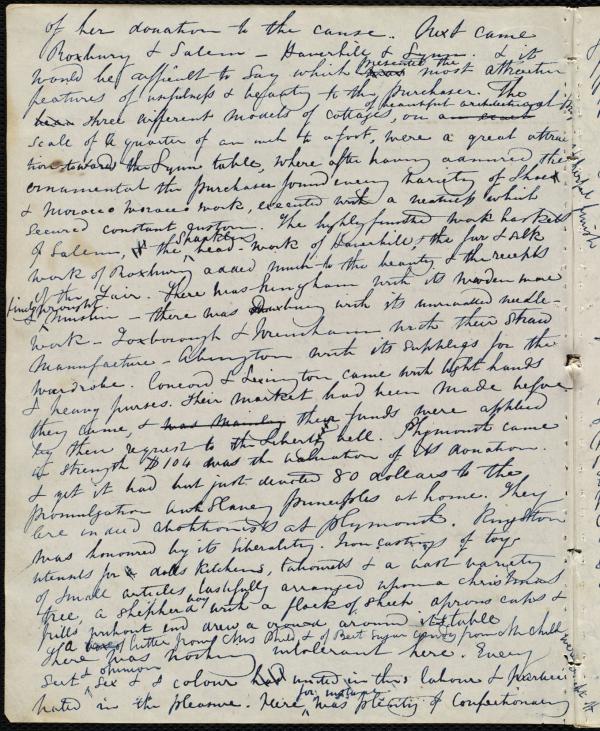 of her donation to the cause. Next came
Roxbury & Salem – Haverhill & Lynn. & it
would be difficult to say which presented the most attractive
features of usefulness & beauty to the purchaser. The
three different models of cottages, of beautiful architecture, on a
scale of a quarter of an inch to a foot, were a great attrac
tion toward the Lynn table, where after having admired the
ornamental the purchaser found every variety of Shoes
& Morocco work, executed with a neatness which
secured constant custom. The highly finished work baskets
of Salem, the Shankless, bead-work of Haverhill, & the fur & silk
work of Roxbury added much to the beauty & the receipts
of the Fair. There was Hingham with its wooden ware
& finely wrought muslin – there was Duxbury with its unrivalled needle-
work – Foxborough & Wrentham with their Straw
Manufacture – Abington with its supplies for the
wardrobe. Concord & Lexington came with light hands
& heavy purses. Their market had been made before
they came, & was mainly their funds were applied
by their request to the Liberty bell. Plymouth came
in strength $104 was the valuation of its donation.
& yet it had but just devoted 80 dollars to the
promulgation Anti Slavery principles at home. They
are indeed abolitionists at Plymouth. Kingston
was honoured by its liberality. Iron castings of toy
utensils for dolls kitchens, tabourets & a vast variety
of small articles, tastefully arranged upon a Christmas
tree, a shepherd boy with a flock of sheep, aprons caps &
frills without end drew a crowd around its table
of butter from Mrs & of Beet Sugar candy from Mr Child
There was nothing intolerant here. Every
Sect & opinion Sex & colour had united in the labour & partici
pated in the pleasure. Here, for instance was plenty of Confectionary